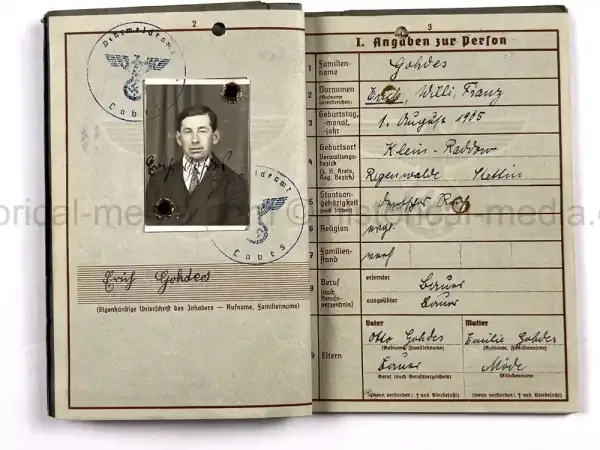 2
Wehrmeldeamt
Labes
Wehrmeldeamt
Labes
Erich Gohdes
(Eigenhändige Unterschrift des Inhabers — Rufname, Familienname)
3
I. Angaben zur Person
1 Familien-
name
Gohdes
2 Vornamen
(Rufname
unterstreichen)
Erich, Willi, Franz
3 Geburtstag,
-monat,
-jahr
1. August 1905
4 Geburtsort
Verwaltungs-
bezirk
(z. B. Kreis,
Reg. Bezirk)
Klein-Raddow
Regenwalde Stettin
5 Staatsan-
gehörigkeit
(auch frühere)
Deutsches Reich
6 Religion
evgl.
7 Familien-
stand
verh
8 Beruf
(nach
Berufs-
verzeichnis)
erlernter
Bauer
ausgeübter
Bauer
9 Eltern
Vater
Otto Gohdes
(Rufname, Familienname)
Bauer
Beruf (nach Berufsverzeichnis)
(wenn verstorben: † und Sterbejahr)
Mutter
Emilie Gohdes
(Rufname, Familienname)
Möde
Mädchenname
(wenn verstorben: † und Sterbejahr)
historical-media.com